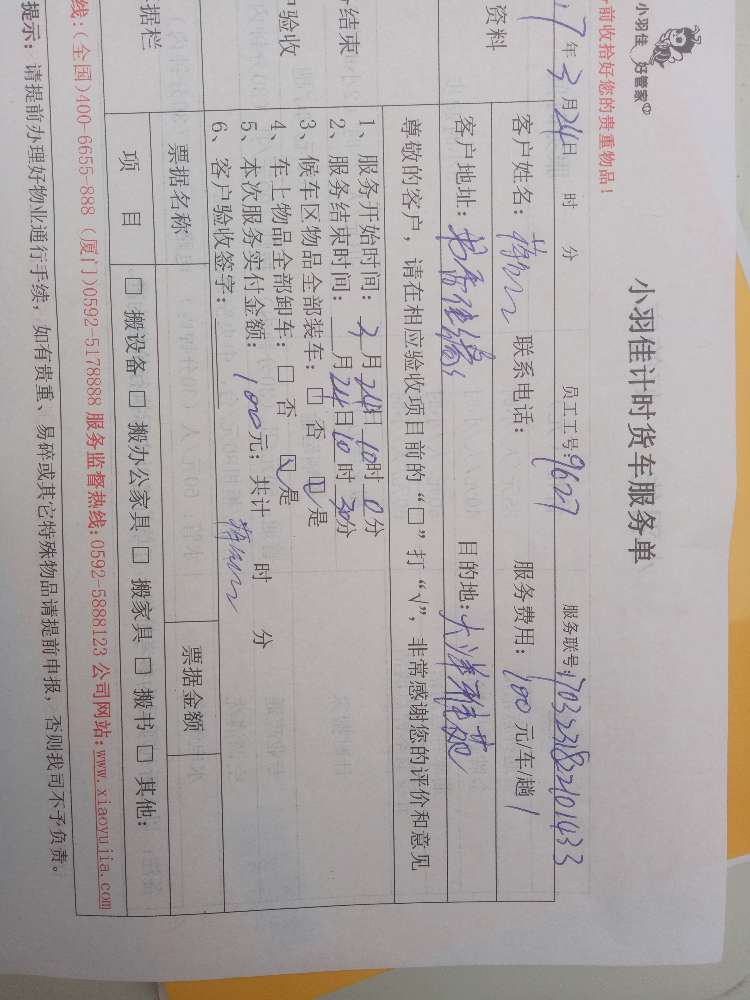 小羽佳 好管家
前收拾好您的贵重物品!
小羽佳计时货车服务单
7年3月24日 时 分 员工工号:9627 服务联号:170323182101433
资料
客户姓名: 联系电话: 服务费用:100元/车/趟
客户地址:书香佳缘 目的地:大洋雅苑
尊敬的客户,请在相应验收项目前的“□”打“√”,非常感谢您的评价和意见
结束
户验收
1、服务开始时间:3月24日10时0分
2、服务结束时间:__月24日10时30分
3、候车区物品全部装车:□否 ☑是
4、车上物品全部卸车:□否 ☑是
5、本次服务实付金额:100元;共计 时 分
6、客户验收签字:
据栏
票据名称 票据金额
项目 □搬设备 □搬办公家具 □搬家具 □搬书 □其他:
线:(全国)400-6655-888 (厦门)0592-5178888 服务监督热线:0592-5888123 公司网站:www.xiaoyujia.com
提示:请提前办理好物业通行手续,如有贵重、易碎或其它特殊物品请提前申报,否则我司不予负责。